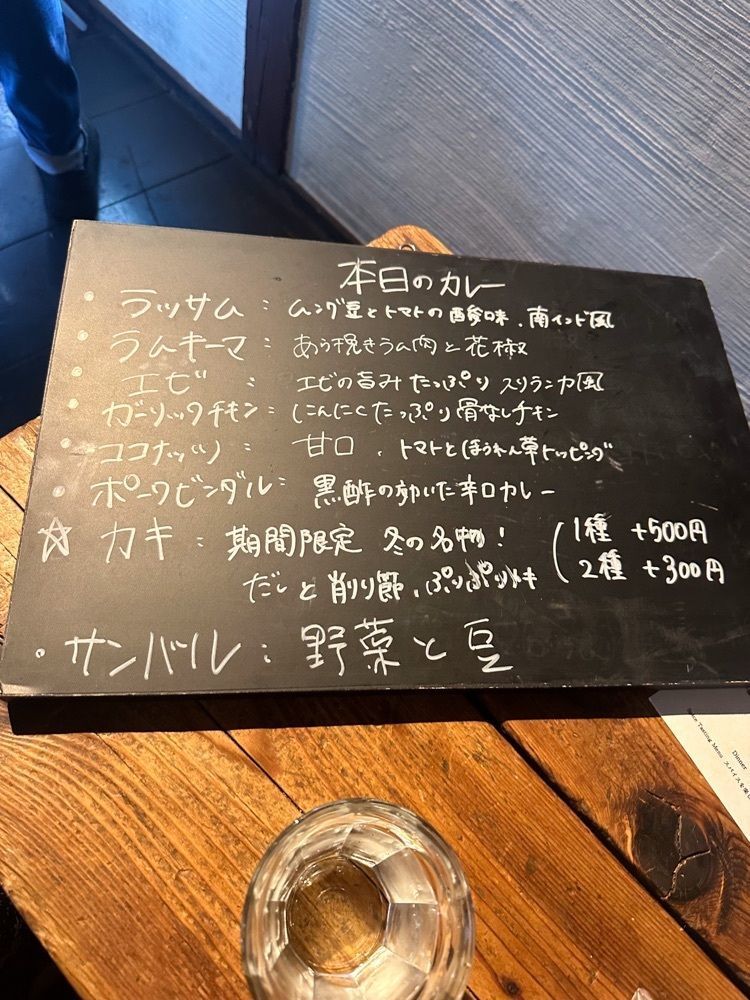 本日のカレー
・ラッサム：ムング豆とトマトの酸味、南インド風
・ラムキーマ：あら挽きラム肉と花椒
・エビ：エビの旨みたっぷりスリランカ風
・ガーリックチキン：にんにくたっぷり骨なしチキン
・ココナッツ：甘口、トマトとほうれん草トッピング
・ポークビンダル：黒酢の効いた辛口カレー
☆カキ：期間限定 冬の名物！ (1種 +500円
だしと削り節、ぷりぷりカキ 2種 +300円
・サンバル：野菜と豆
Dinner
Tasting Menu スパイスを楽し